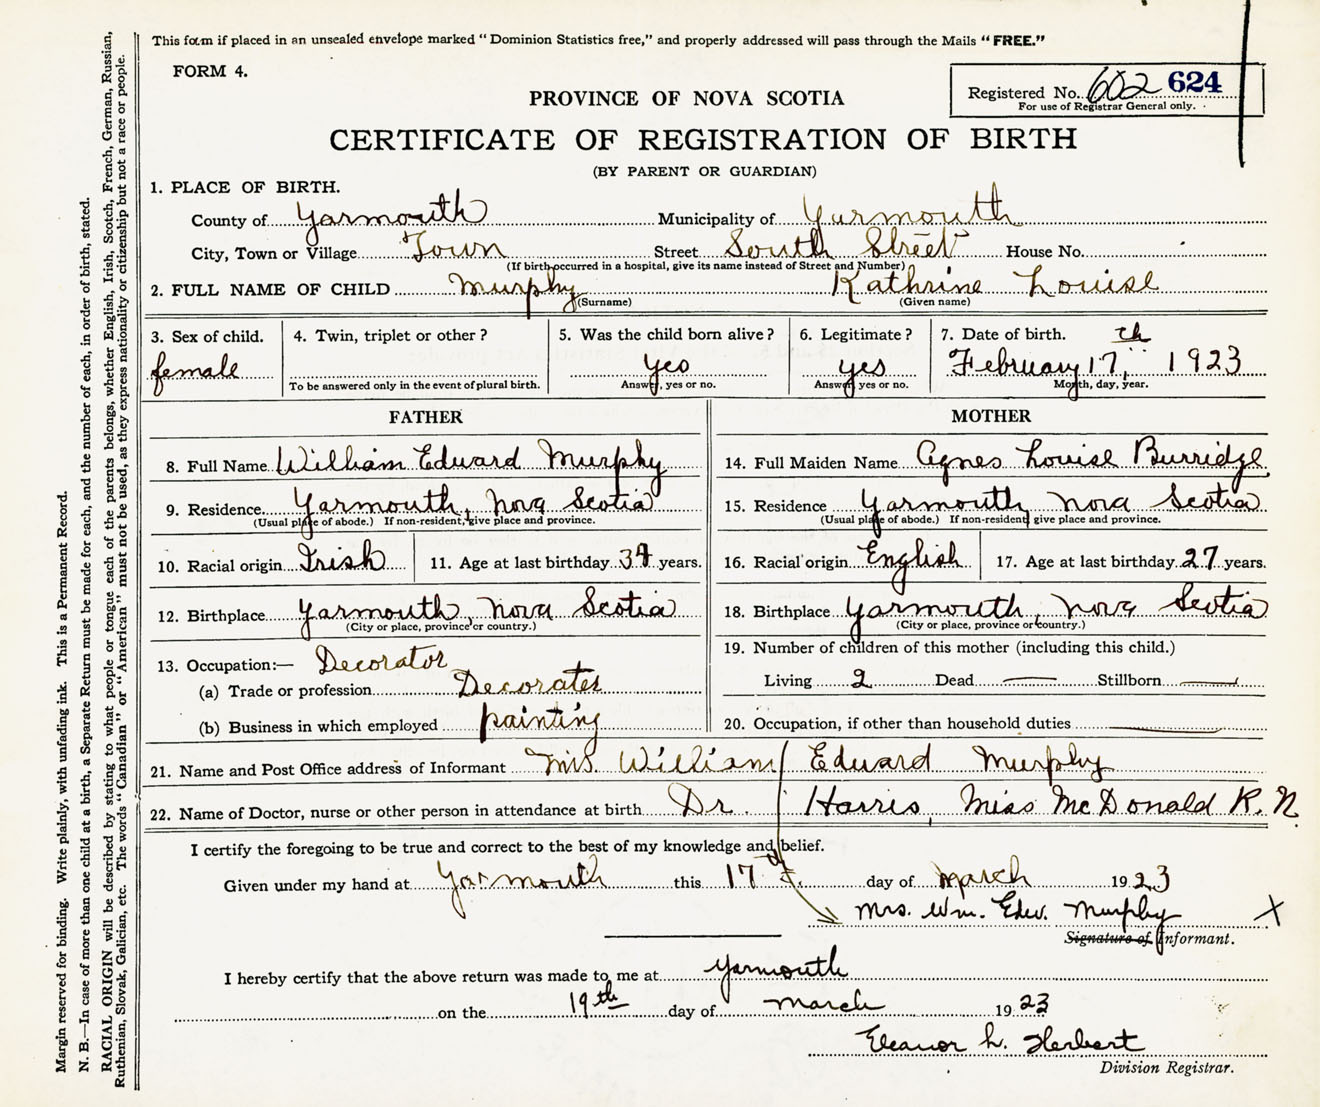 This form if placed in an unsealed envelope marked "Dominion Statistics free," and properly addressed will pass through the Mails "FREE."
FORM 4.
Registered No. 602 624
For use of Registrar General only.
PROVINCE OF NOVA SCOTIA
CERTIFICATE OF REGISTRATION OF BIRTH
(BY PARENT OR GUARDIAN)
1. PLACE OF BIRTH.
County of Yarmouth Municipality of Yarmouth
City, Town or Village Town Street South Street House No.
(If birth occurred in a hospital, give its name instead of Street and Number)
2. FULL NAME OF CHILD Murphy Kathrine Louise
(Surname) (Given name)
3. Sex of child. 4. Twin, triplet or other? 5. Was the child born alive? 6. Legitimate? 7. Date of birth.
female yes yes February 17th, 1923
To be answered only in the event of plural birth. Answer, yes or no. Answer, yes or no. Month, day, year.
FATHER MOTHER
8. Full Name William Edward Murphy 14. Full Maiden Name Agnes Louise Burridge
9. Residence Yarmouth, Nova Scotia 15. Residence Yarmouth, Nova Scotia
(Usual place of abode.) If non-resident, give place and province. (Usual place of abode.) If non-resident, give place and province.
10. Racial origin Irish 11. Age at last birthday 34 years. 16. Racial origin English 17. Age at last birthday 27 years.
12. Birthplace Yarmouth, Nova Scotia 18. Birthplace Yarmouth, Nova Scotia
(City or place, province or country.) (City or place, province or country.)
13. Occupation:— Decorator 19. Number of children of this mother (including this child.)
(a) Trade or profession Decorater Living 2 Dead — Stillborn —
(b) Business in which employed painting 20. Occupation, if other than household duties —
21. Name and Post Office address of Informant Mrs. William Edward Murphy
22. Name of Doctor, nurse or other person in attendance at birth Dr. Harris, Miss McDonald R.N.
I certify the foregoing to be true and correct to the best of my knowledge and belief.
Given under my hand at Yarmouth this 17th day of March 1923
Mrs. Wm. Edw. Murphy X
Signature of Informant.
I hereby certify that the above return was made to me at Yarmouth
on the 19th day of March 1923
Eleanor L. Herbert
Division Registrar.
Margin reserved for binding. Write plainly, with unfading ink. This is a Permanent Record.
N. B.—In case of more than one child at a birth, a Separate Return must be made for each, and the number of each, in order of birth, stated.
RACIAL ORIGIN will be described by stating to what people or tongue each of the parents belongs, whether English, Irish, Scotch, French, German, Russian,
Ruthenian, Slovak, Galician, etc. The words "Canadian" or "American" must not be used, as they express nationality or citizenship but not a race or people.